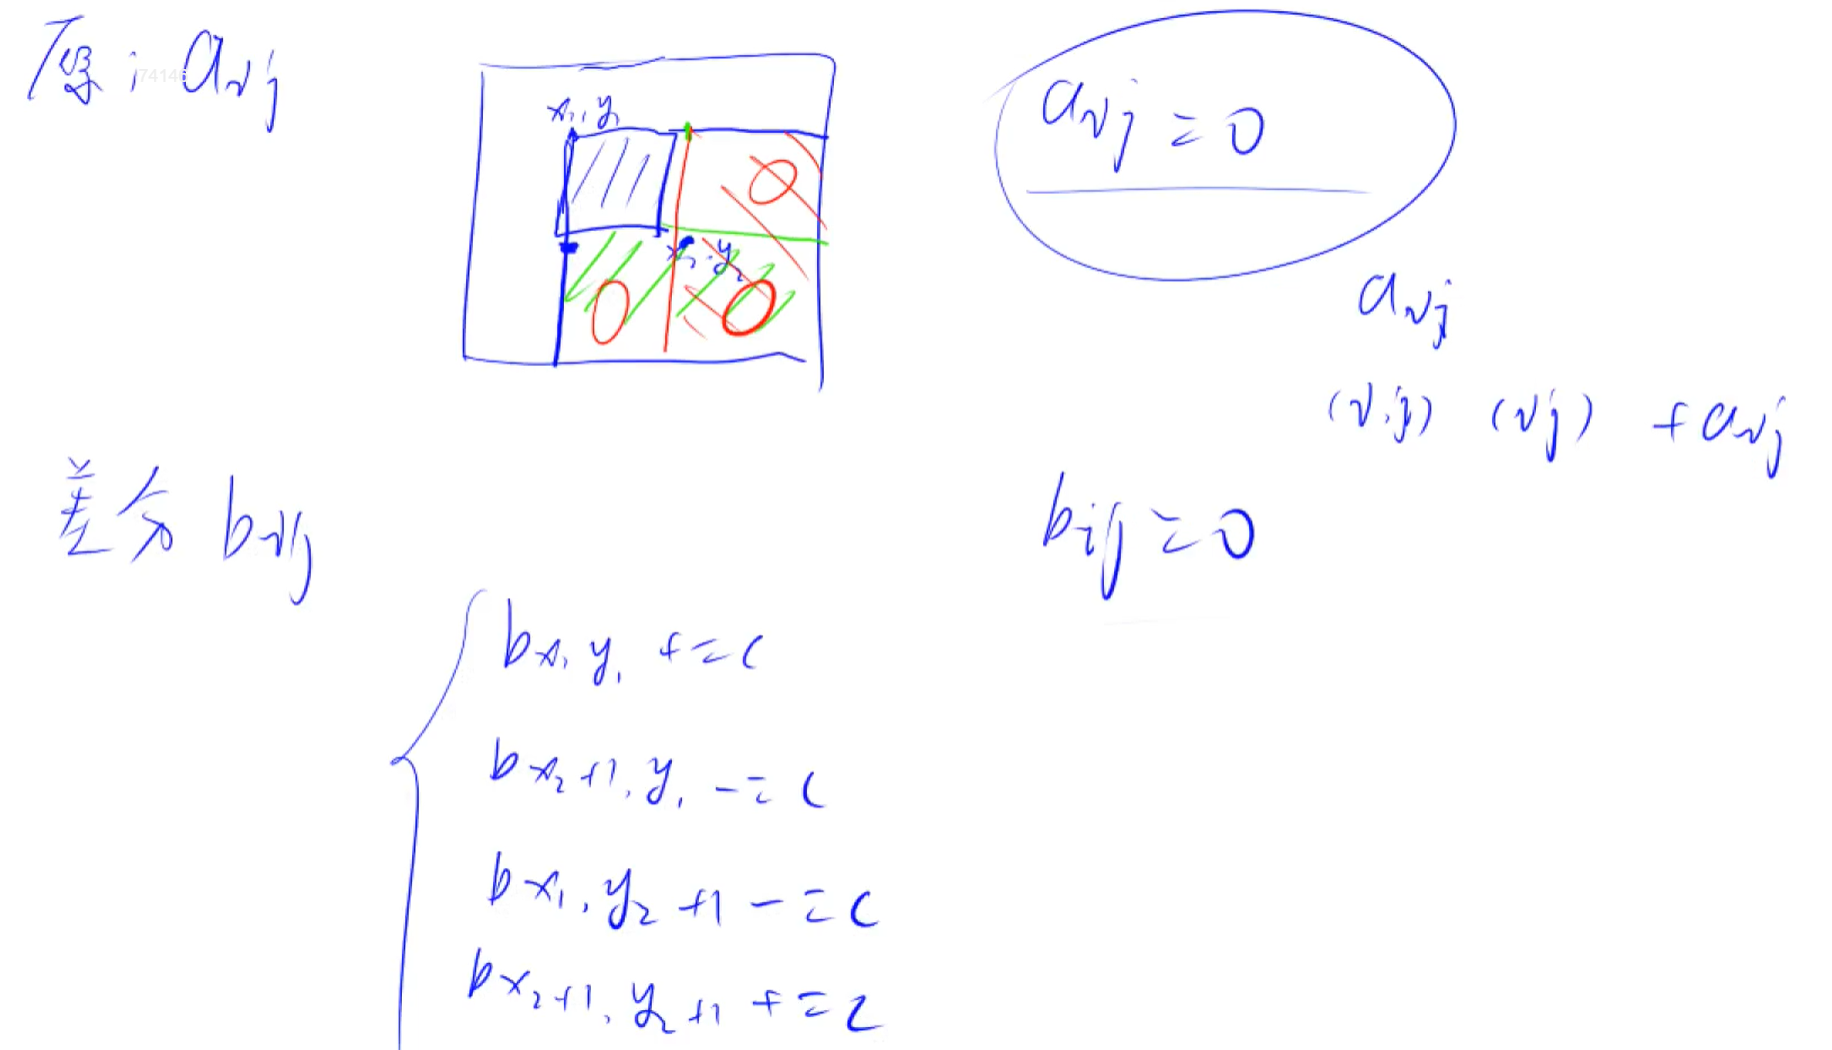 原: aij
x1, y1
0
x2, y2
0 0
aij = 0
aij
(i,j) (ij) + aij
差分 bij
bij = 0
bx1 y1 += c
bx2+1, y1 -= c
bx1, y2+1 -= c
bx2+1, y2+1 += c